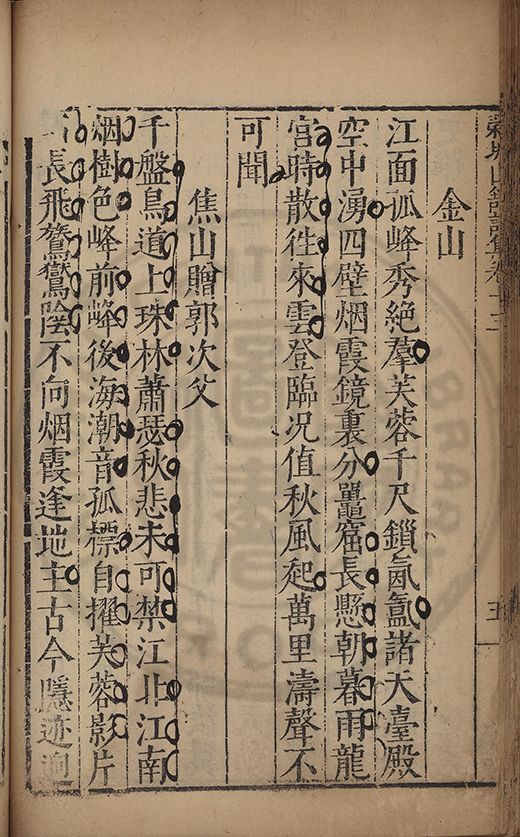 山詩集卷十三
五
金山
江面孤峰秀絶羣芙蓉千尺鎖氤氳諸天臺殿
空中湧四壁烟霞鏡裏分鼉窟長懸朝暮雨龍
宮時散徃來雲登臨况值秋風起萬里濤聲不
可聞
焦山贈郭次父
千盤鳥道上珠林蕭瑟秋悲未可禁江北江南
烟樹色峰前峰後海潮音孤標自擢芙蓉影片
長飛陰不向烟霞逢地主古今隱迹